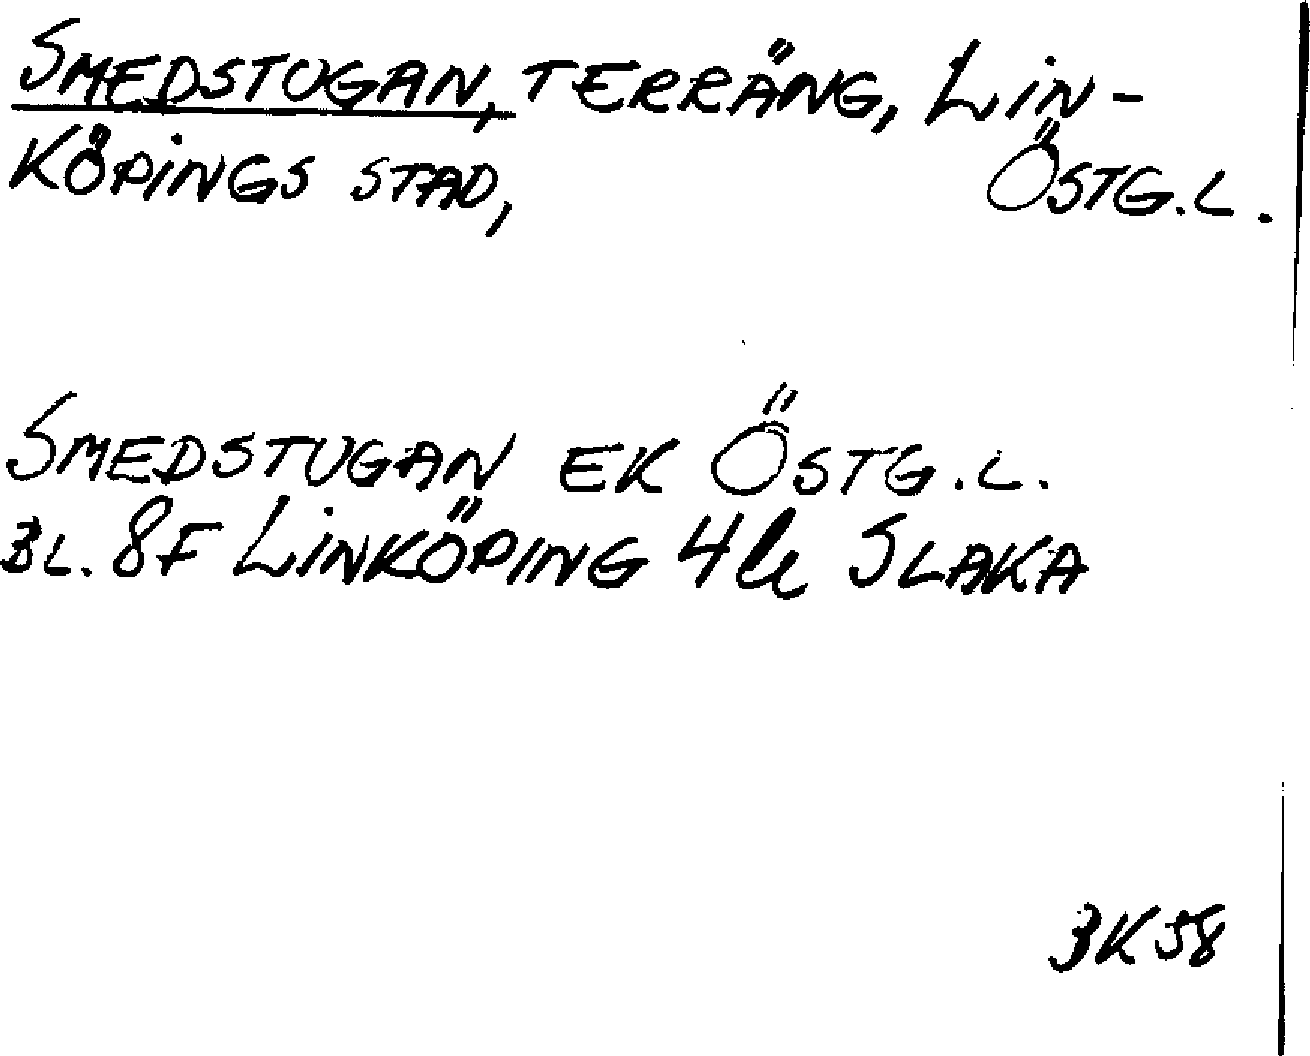 SMEDSTUGAN, TERRÄNG, LIN-
KÖPINGS STAD, ÖSTG.L.
SMEDSTUGAN EK ÖSTG.L.
BL. 8F LINKÖPING 4 SLAKA
BK 58